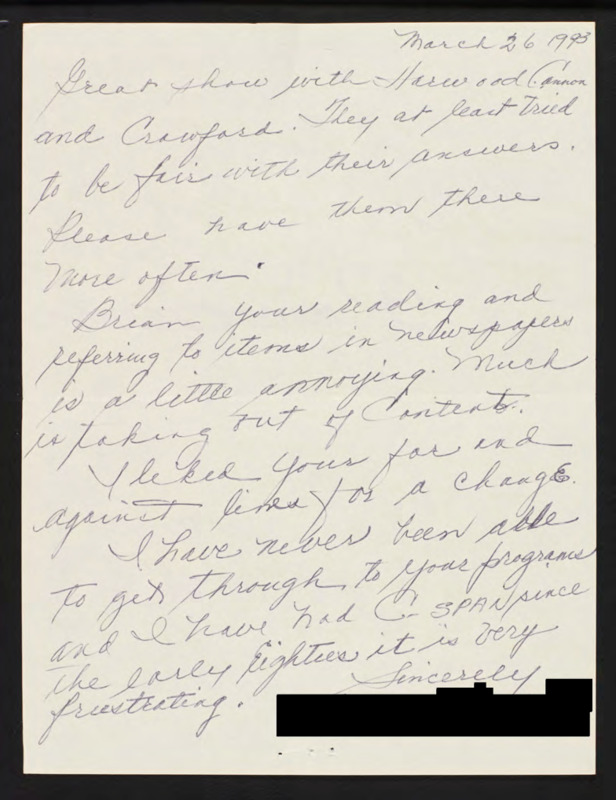 March 26 1993
Great show with Harwood Cannon
and Crawford. They at least tried
to be fair with their answers.
Please have them there
more often.
Brian your reading and
referring to items in newspapers
is a little annoying. Much
is taking out of Content.
I liked your for and
against lines for a change.
I have never been able
to get through to your programs
and I have had C-SPAN since
the early Eighties it is very
frustrating.
Sincerely